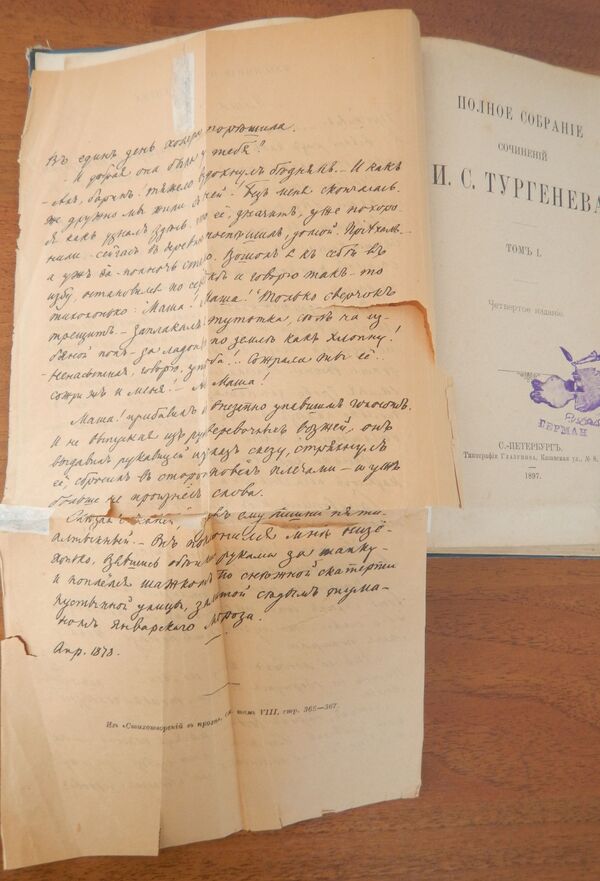 Въ единъ день холера порѣшила.
— И добрая она была у тебя?
— Ахъ, баринъ! тяжело вздохнулъ бѣднякъ. — И какъ
же дружно мы жили съ ней! Безъ меня скончалась.
Я какъ узналъ здѣсь, что её, значитъ, уже похоро-
нили — сейчасъ въ деревню поспѣшилъ, домой. Пріѣхалъ —
а ужъ за-полночь стало. Вошолъ я къ себѣ въ
избу, остановился по серёдкѣ и говорю такъ-то
тихохонько: Маша! а Маша! Только сверчокъ
трещитъ. — Заплакалъ я тутотка, сѣлъ на из-
бяной полъ — да ладонью по землѣ какъ хлопну!
Ненасытная, говорю, утроба!.. Сожрала ты её..
сожри жъ и меня! — Ахъ Маша!
Маша! прибавилъ онъ внезапно упавшимъ голосомъ.
И не выпуская изъ рукъ верёвочныхъ вожжей, онъ
выдавилъ рукавицей изъ глазъ слезу, стряхнулъ
её, сбросилъ въ сторону, повёлъ плечами — и ужъ
больше не произнёсъ ни слова.
Слѣзая съ саней, я далъ ему лишній пяти-
алтынный. — Онъ поклонился мнѣ низё-
хонько, взявшись обѣими руками за шапку —
и поплёлся шажкомъ по снѣжной скатерти
пустынной улицы, залитой сѣдымъ тума-
номъ январскаго мороза.
Апр. 1878.
Изъ «Стихотвореній въ прозѣ», томъ VIII, стр. 365—367.
ПОЛНОЕ СОБРАНІЕ
СОЧИНЕНІЙ
И. С. ТУРГЕНЕВА
ТОМЪ I.
Четвертое изданіе.
ГЕРМАН
С.-ПЕТЕРБУРГЪ.
Типографія Глазунова, Казанская ул., № 8.
1897.